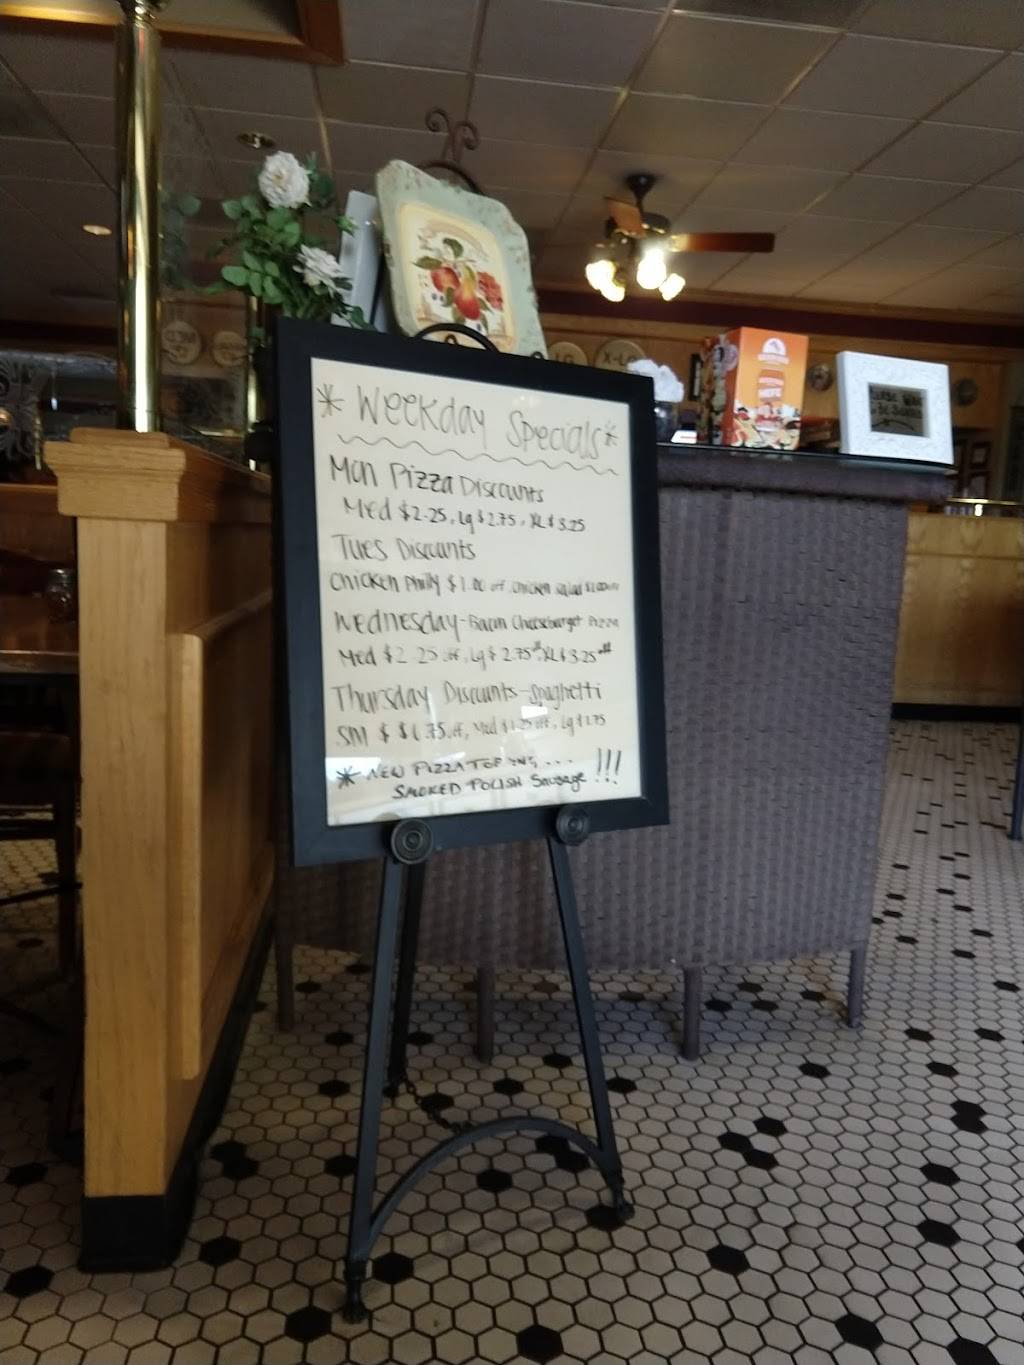 * Weekday Specials *
Mon Pizza Discounts
Med $2.25, Lg $2.75, XL $3.25
Tues Discounts
Chicken Philly $1.00 off, Chicken Salad $1.00
Wednesday - Bacon Cheeseburger Pizza
Med $2.25 off, Lg $2.75 off, XL $3.25 off
Thursday Discounts - Spaghetti
SM $ $1.75 off, Med $1.25 off, Lg $1.75
* NEW PIZZA TOPPING ...
SMOKED POLISH Sausage !!!
LG
X-LG
Please Wait
to be Seated